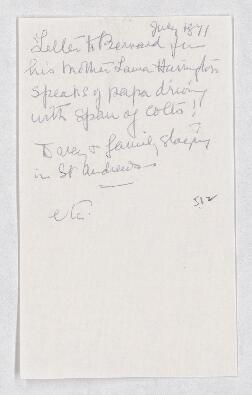 July 1871
Letter to Bernard from
his Mother Lama Harrington
speaks of papa driving
with span of colts!
Davey & family staying
in St Andrews
etc.
512